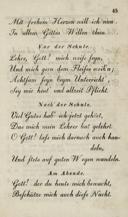 45
Mit frohem Herzen will ich nun,
In allem Gottes Willen thun.
Vor der Schule.
Lehre, Gott! mich weise seyn,
Und mich gern dem Fleiße weih'n;
Achtsam seyn beym Unterricht,
Sey mir heut und allzeit Pflicht.
Nach der Schule.
Viel Gutes hab' ich jetzt gehört,
Das mich mein Lehrer hat gelehrt.
O Gott! laß mich darnach auch han-
deln,
Und stets auf guten Wegen wandeln.
Am Abende.
Gott! der du heute mich bewacht,
Beschütze mich auch diese Nacht.